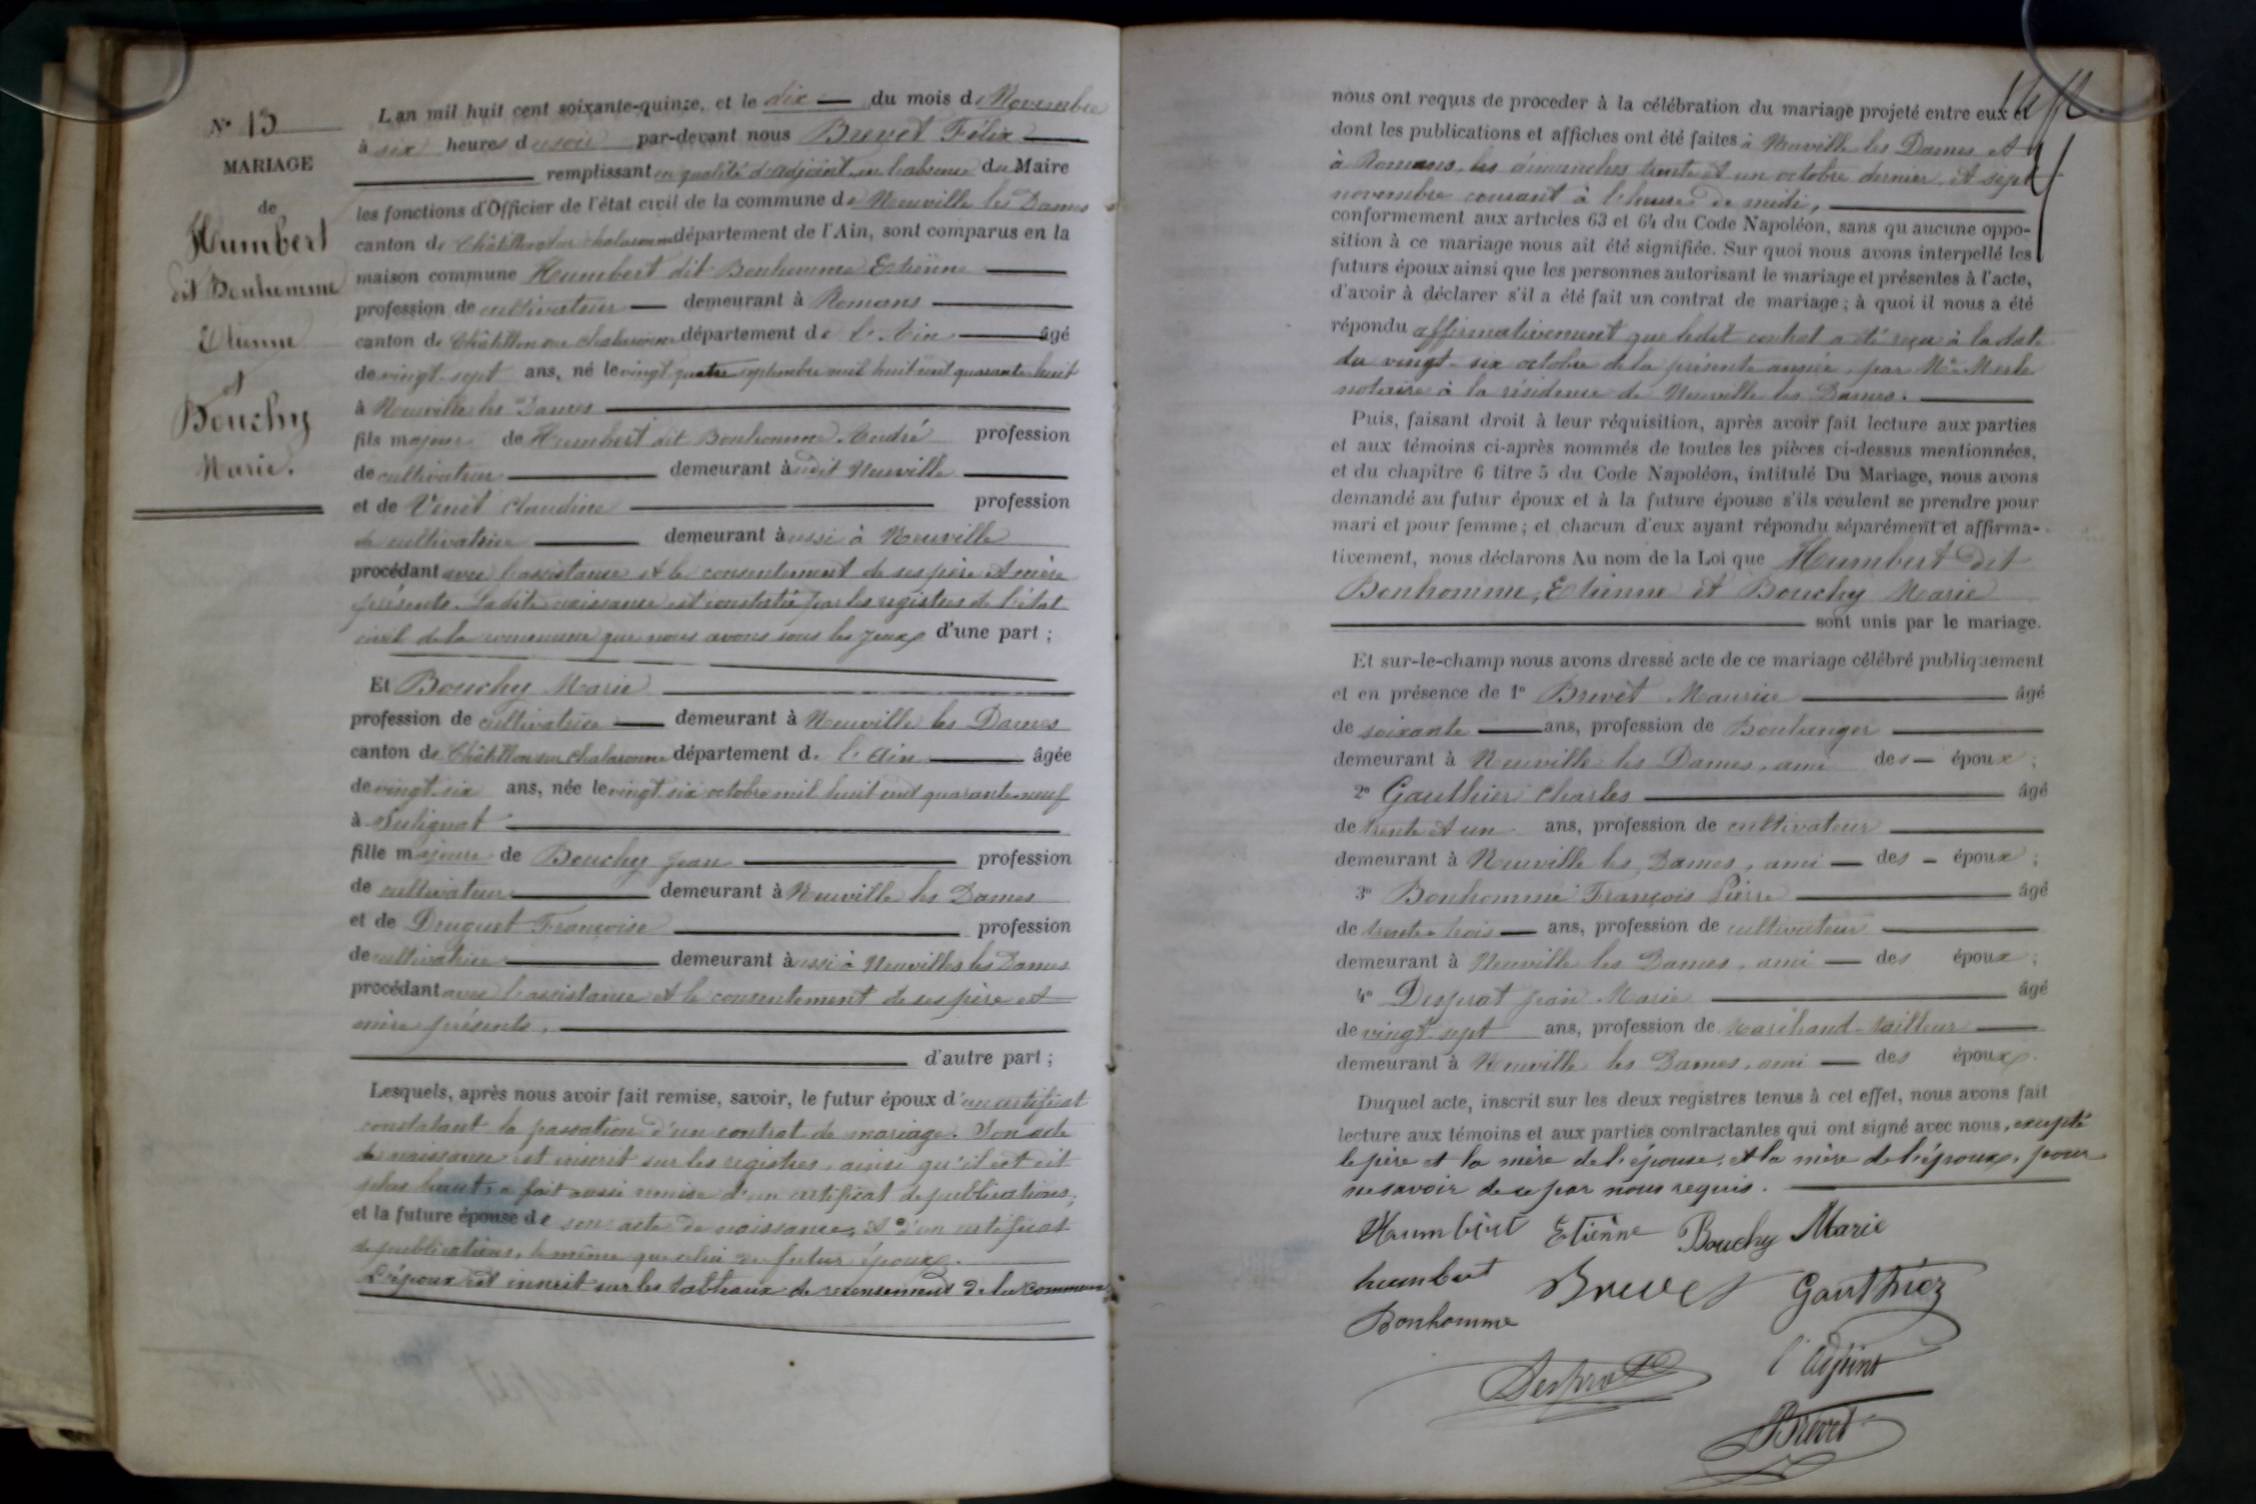 N° 13
MARIAGE
de
Humbert
dit Bonhomme
Etienne
et
Bouchy
Marie.
L'an mil huit cent soixante-quinze, et le dix du mois de Novembre
à six heures du soir par-devant nous Brevet Félix
remplissant en qualité d'adjoint en l'absence du Maire
les fonctions d'Officier de l'état civil de la commune de Neuville les Dames
canton de Châtillon sur Chalaronne département de l'Ain, sont comparus en la
maison commune Humbert dit Bonhomme Etienne
profession de cultivateur demeurant à Romans
canton de Châtillon sur Chalaronne département de l'Ain âgé
de vingt-sept ans, né le vingt quatre septembre mil huit cent quarante huit
à Neuville les Dames
fils majeur de Humbert dit Bonhomme André profession
de cultivateur demeurant à udit Neuville
et de Venet Claudine profession
de cultivatrice demeurant aussi à Neuville
procédant avec l'assistance et le consentement de ses père et mère
présents. La dite naissance est constatée par les registres de l'état
civil de la commune que nous avons sous les yeux d'une part ;
Et Bouchy Marie
profession de cultivatrice demeurant à Neuville les Dames
canton de Châtillon sur Chalaronne département de l'Ain âgée
de vingt-six ans, née le vingt six octobre mil huit cent quarante-neuf
à Sulignat
fille majeure de Bouchy Jean profession
de cultivateur demeurant à Neuville les Dames
et de Druguet Françoise profession
de cultivatrice demeurant aussi à Neuville les Dames
procédant avec l'assistance et le consentement de ses père et
mère présents.
d'autre part ;
Lesquels, après nous avoir fait remise, savoir, le futur époux d'un certificat
constatant la passation d'un contrat de mariage. Son acte
de naissance est inscrit sur les registres, ainsi qu'il est dit
plus haut, a fait aussi remise d'un certificat de publications,
et la future épouse de son acte de naissance, et d'un certificat
de publications, le même que celui du futur époux.
L'époux est inscrit sur les tableaux de recensement de la commune
nous ont requis de procéder à la célébration du mariage projeté entre eux et
dont les publications et affiches ont été faites à Neuville les Dames et
à Romans, les dimanches trente et un octobre dernier et sept
novembre courant à l'heure de midi,
conformément aux articles 63 et 64 du Code Napoléon, sans qu'aucune oppo-
sition à ce mariage nous ait été signifiée. Sur quoi nous avons interpellé les
futurs époux ainsi que les personnes autorisant le mariage et présentes à l'acte,
d'avoir à déclarer s'il a été fait un contrat de mariage ; à quoi il nous a été
répondu affirmativement que ledit contrat a été reçu à la date
du vingt-six octobre de la présente année, par Me Merle
notaire à la résidence de Neuville les Dames.
Puis, faisant droit à leur réquisition, après avoir fait lecture aux parties
et aux témoins ci-après nommés de toutes les pièces ci-dessus mentionnées,
et du chapitre 6 titre 5 du Code Napoléon, intitulé Du Mariage, nous avons
demandé au futur époux et à la future épouse s'ils veulent se prendre pour
mari et pour femme ; et chacun d'eux ayant répondu séparément et affirma-
tivement, nous déclarons Au nom de la Loi que Humbert dit
Bonhomme, Etienne et Bouchy Marie
sont unis par le mariage.
Et sur-le-champ nous avons dressé acte de ce mariage célébré publiquement
et en présence de 1° Brevet Maurice âgé
de soixante ans, profession de Boulanger
demeurant à Neuville les Dames, ami des époux ;
2° Gauthier Charles âgé
de trente et un ans, profession de cultivateur
demeurant à Neuville les Dames, ami des époux ;
3° Bonhomme François Pierre âgé
de trente-trois ans, profession de cultivateur
demeurant à Neuville les Dames, ami des époux ;
4° Desprat Jean Marie âgé
de vingt-sept ans, profession de marchand-tailleur
demeurant à Neuville les Dames, ami des époux.
Duquel acte, inscrit sur les deux registres tenus à cet effet, nous avons fait
lecture aux témoins et aux parties contractantes qui ont signé avec nous, excepté
le père et la mère de l'épouse, et la mère de l'époux, pour
ne savoir de ce par nous requis.
Humbert Etiènne Bouchy Marie
humbert Brevet Gauthiez
Bonhomme
l'adjoint
Desprat
Brevet